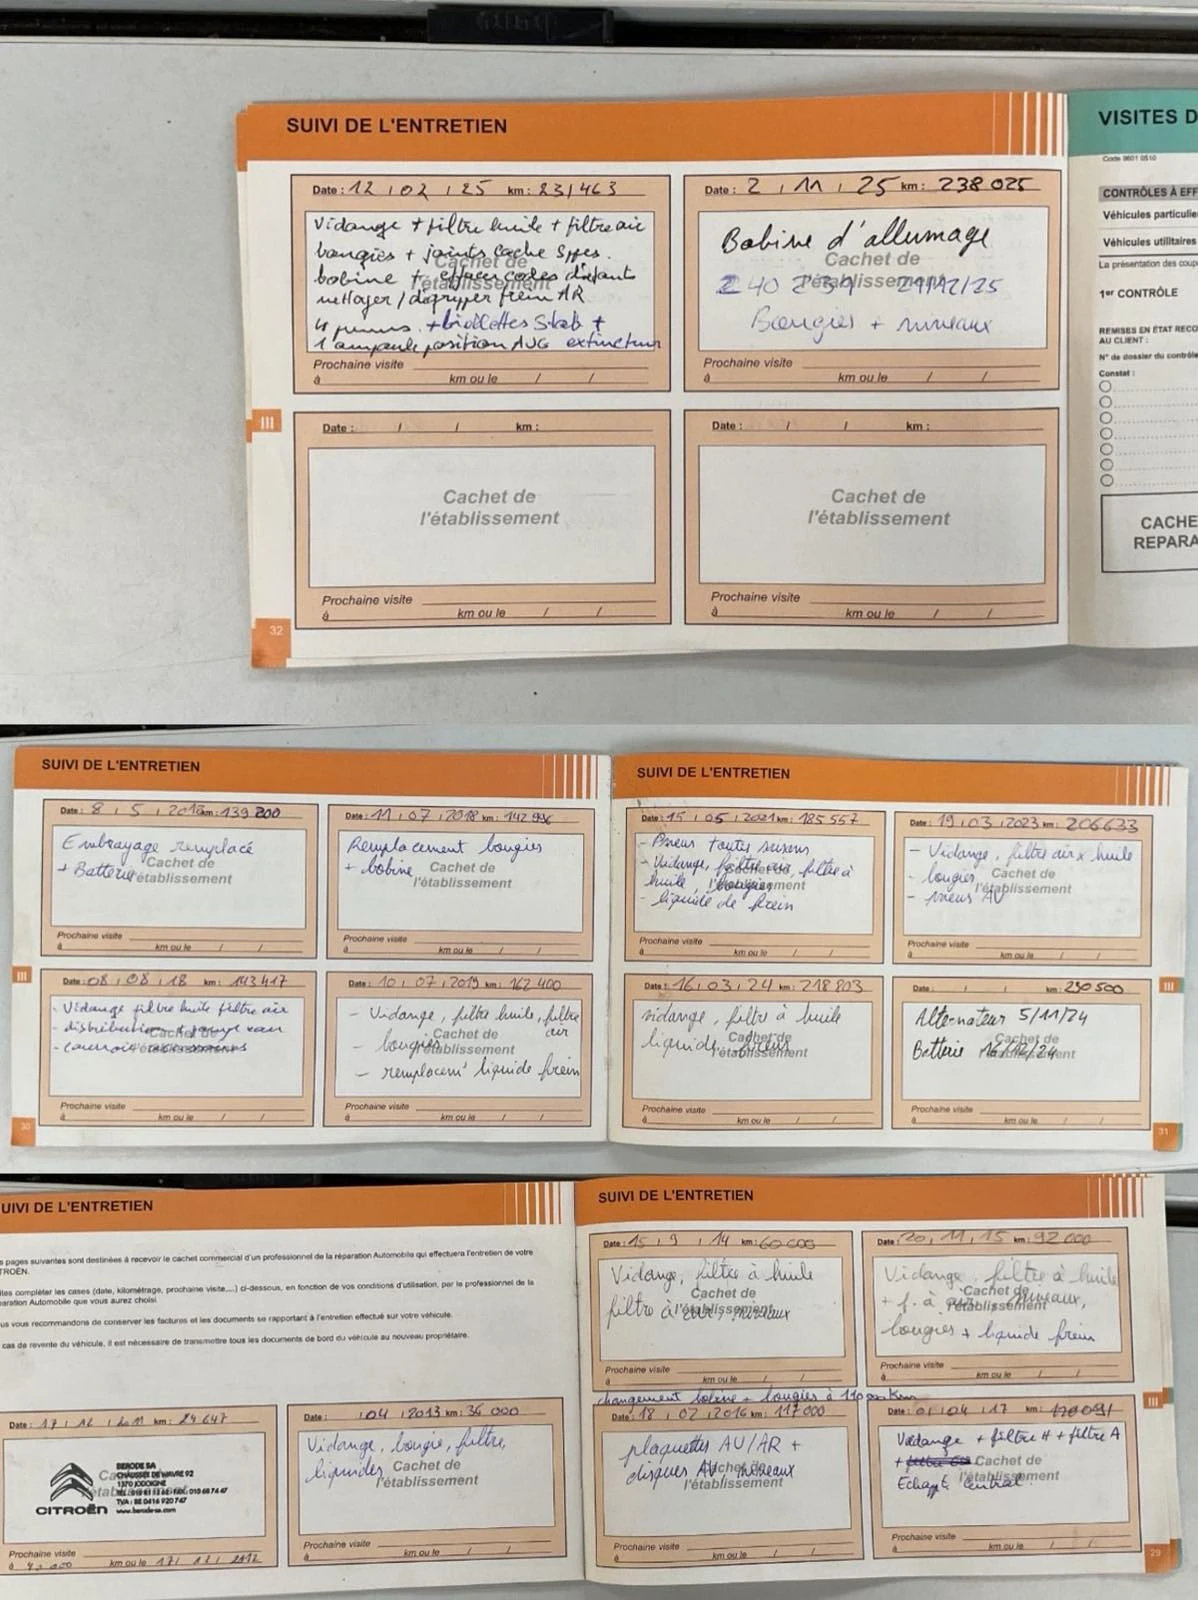 SUIVI DE L'ENTRETIEN
Date : 12 / 02 / 25 km : 231463
Vidange + filtre huile + filtre air
bougies + joints cache
bobine + effacer codes défauts
nettoyer / dégripper frein AR
4 pneus + biellettes Stab +
1 ampoule position AVG extincteur
Cachet de
l'établissement
Prochaine visite
à km ou le / /
Date : 2 / 11 / 25 km : 238 025
Bobine d'allumage
240 231 29/12/25
Bougies + niveaux
Cachet de
l'établissement
Prochaine visite
à km ou le / /
III
Date : / / km :
Cachet de
l'établissement
Prochaine visite
à km ou le / /
Date : / / km :
Cachet de
l'établissement
Prochaine visite
à km ou le / /
32
VISITES D
Code 9601 0510
CONTRÔLES À EFF
Véhicules particulie
Véhicules utilitaires
La présentation des coup
1er CONTRÔLE
REMISES EN ÉTAT RECO
AU CLIENT :
N° de dossier du contrôle
Constat :
CACHE
REPARA
SUIVI DE L'ENTRETIEN
Date : 8 / 5 / 2018 km : 139 200
Embrayage remplacé
+ Batterie
Cachet de
l'établissement
Prochaine visite
à km ou le / /
Date : 11 / 07 / 2018 km : 142 996
Remplacement bougies
+ bobine
Cachet de
l'établissement
Prochaine visite
à km ou le / /
III
Date : 08 / 08 / 18 km : 143 417
- Vidange filtre huile filtre air
- distribution + pompe eau
- courroie
Cachet de
l'établissement
Prochaine visite
à km ou le / /
Date : 10 / 07 / 2019 km : 162 400
- Vidange, filtre huile, filtre
air
- bougies
- remplacem' liquide frein
Cachet de
l'établissement
Prochaine visite
à km ou le / /
30
SUIVI DE L'ENTRETIEN
Date : 15 / 05 / 2021 km : 185 557
- Pneus toutes saisons
- Vidange, filtre air, filtre à
huile, bougies
- liquide de frein
Cachet de
l'établissement
Prochaine visite
à km ou le / /
Date : 19 / 03 / 2023 km : 206633
- Vidange, filtre air x huile
- bougies
- pneus AV
Cachet de
l'établissement
Prochaine visite
à km ou le / /
Date : 16 / 03 / 24 km : 218 803
vidange, filtre à huile
liquide freins
Cachet de
l'établissement
Prochaine visite
à km ou le / /
Date : / / km : 230 500
Alternateur 5/11/24
Batterie 16/12/24
Cachet de
l'établissement
Prochaine visite
à km ou le / /
III
31
UIVI DE L'ENTRETIEN
s pages suivantes sont destinées à recevoir le cachet commercial d'un professionnel de la réparation Automobile qui effectuera l'entretien de votre
TROËN.
ites compléter les cases (date, kilométrage, prochaine visite,...) ci-dessous, en fonction de vos conditions d'utilisation, par le professionnel de la
paration Automobile que vous aurez choisi.
us vous recommandons de conserver les factures et les documents se rapportant à l'entretien effectué sur votre véhicule.
cas de revente du véhicule, il est nécessaire de transmettre tous les documents de bord du véhicule au nouveau propriétaire.
Date : 17 / 12 / 2011 km : 24 647
CITROËN
BERODE SA
CHAUSSÉE DE WAVRE 92
1370 JODOIGNE
TVA : BE 0416 920 747
www.berode-sa.com
Prochaine visite
à 42 000 km ou le 17 / 12 / 2012
Date : / 04 / 2013 km : 36 000
Vidange, bougie, filtre,
liquides
Cachet de
l'établissement
Prochaine visite
à km ou le / /
SUIVI DE L'ENTRETIEN
Date : 15 / 9 / 14 km : 60 000
Vidange, filtre à huile
filtre à air, niveaux
Cachet de
l'établissement
Prochaine visite
à km ou le / /
Date : 20 / 11 / 15 km : 92 000
Vidange, filtre à huile
+ f. à air, niveaux,
bougies + liquide frein
Cachet de
l'établissement
Prochaine visite
à km ou le / /
changement bobine + bougies à 110 000 Km
Date : 18 / 02 / 2016 km : 117 000
plaquettes AV/AR +
disques AV niveaux
Cachet de
l'établissement
Prochaine visite
à km ou le / /
Date : 01 / 04 / 17 km :
Vidange + filtre H + filtre A
+
Echapt Central
Cachet de
l'établissement
Prochaine visite
à km ou le / /
III
29